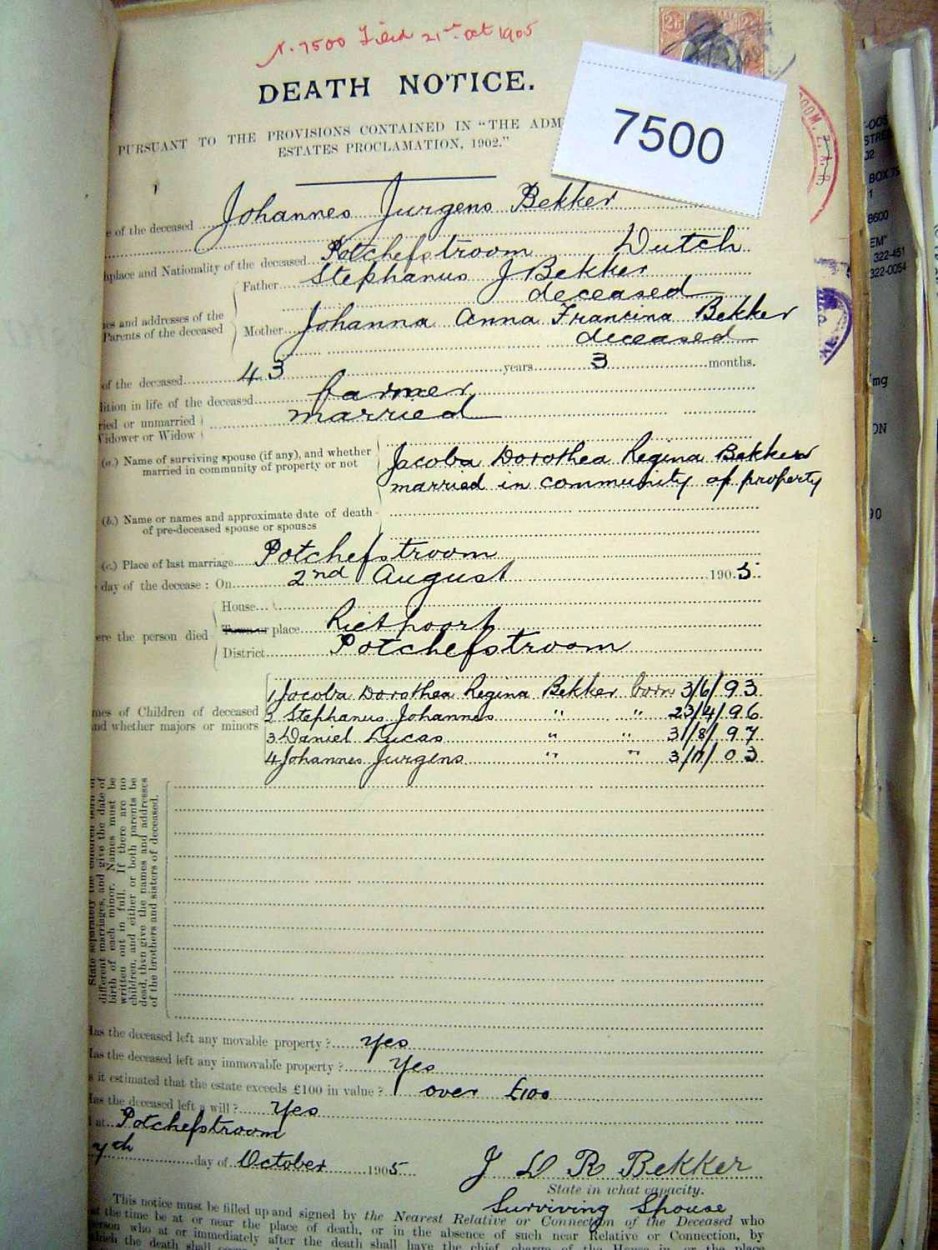 N. 7500 Filed 21st Oct 1905
DEATH NOTICE.
7500
PURSUANT TO THE PROVISIONS CONTAINED IN "THE ADM
ESTATES PROCLAMATION, 1902."
e of the deceased Johannes Jurgens Bekker
hplace and Nationality of the deceased Potchefstroom Dutch
Father Stephanus J Bekker
deceased
es and addresses of the
Parents of the deceased
Mother Johanna Anna Francina Bekker
deceased
of the deceased 43 years 3 months.
dition in life of the deceased farmer
ried or unmarried married
Widower or Widow
(a.) Name of surviving spouse (if any), and whether
married in community of property or not
Jacoba Dorothea Regina Bekker
married in community of property
(b.) Name or names and approximate date of death
of pre-deceased spouse or spouses
(c.) Place of last marriage Potchefstroom
day of the decease: On 2nd August 1905
House
ere the person died place Rietpoort
District Potchefstroom
mes of Children of deceased
nd whether majors or minors
1 Jacoba Dorothea Regina Bekker born 3/6/93
2 Stephanus Johannes " " 23/4/96
3 Daniel Lucas " " 31/8/97
4 Johannes Jurgens " " 3/11/03
State separately the children born of
different marriages, and give the date of
birth of each minor. Names must be
written out in full. If there are no
children, and either or both parents be
dead, then give the names and addresses
of the brothers and sisters of deceased.
Has the deceased left any movable property? Yes
Has the deceased left any immovable property? Yes
s it estimated that the estate exceeds £100 in value? over £100
Has the deceased left a will? Yes
at Potchefstroom
7th day of October 1905
J D R Bekker
State in what capacity.
Surviving Spouse
This notice must be filled up and signed by the Nearest Relative or Connection of the Deceased who
at the time be at or near the place of death, or in the absence of such near Relative or Connection, by
person who at or immediately after the death shall have the chief charge of the House in or the place
which the death shall